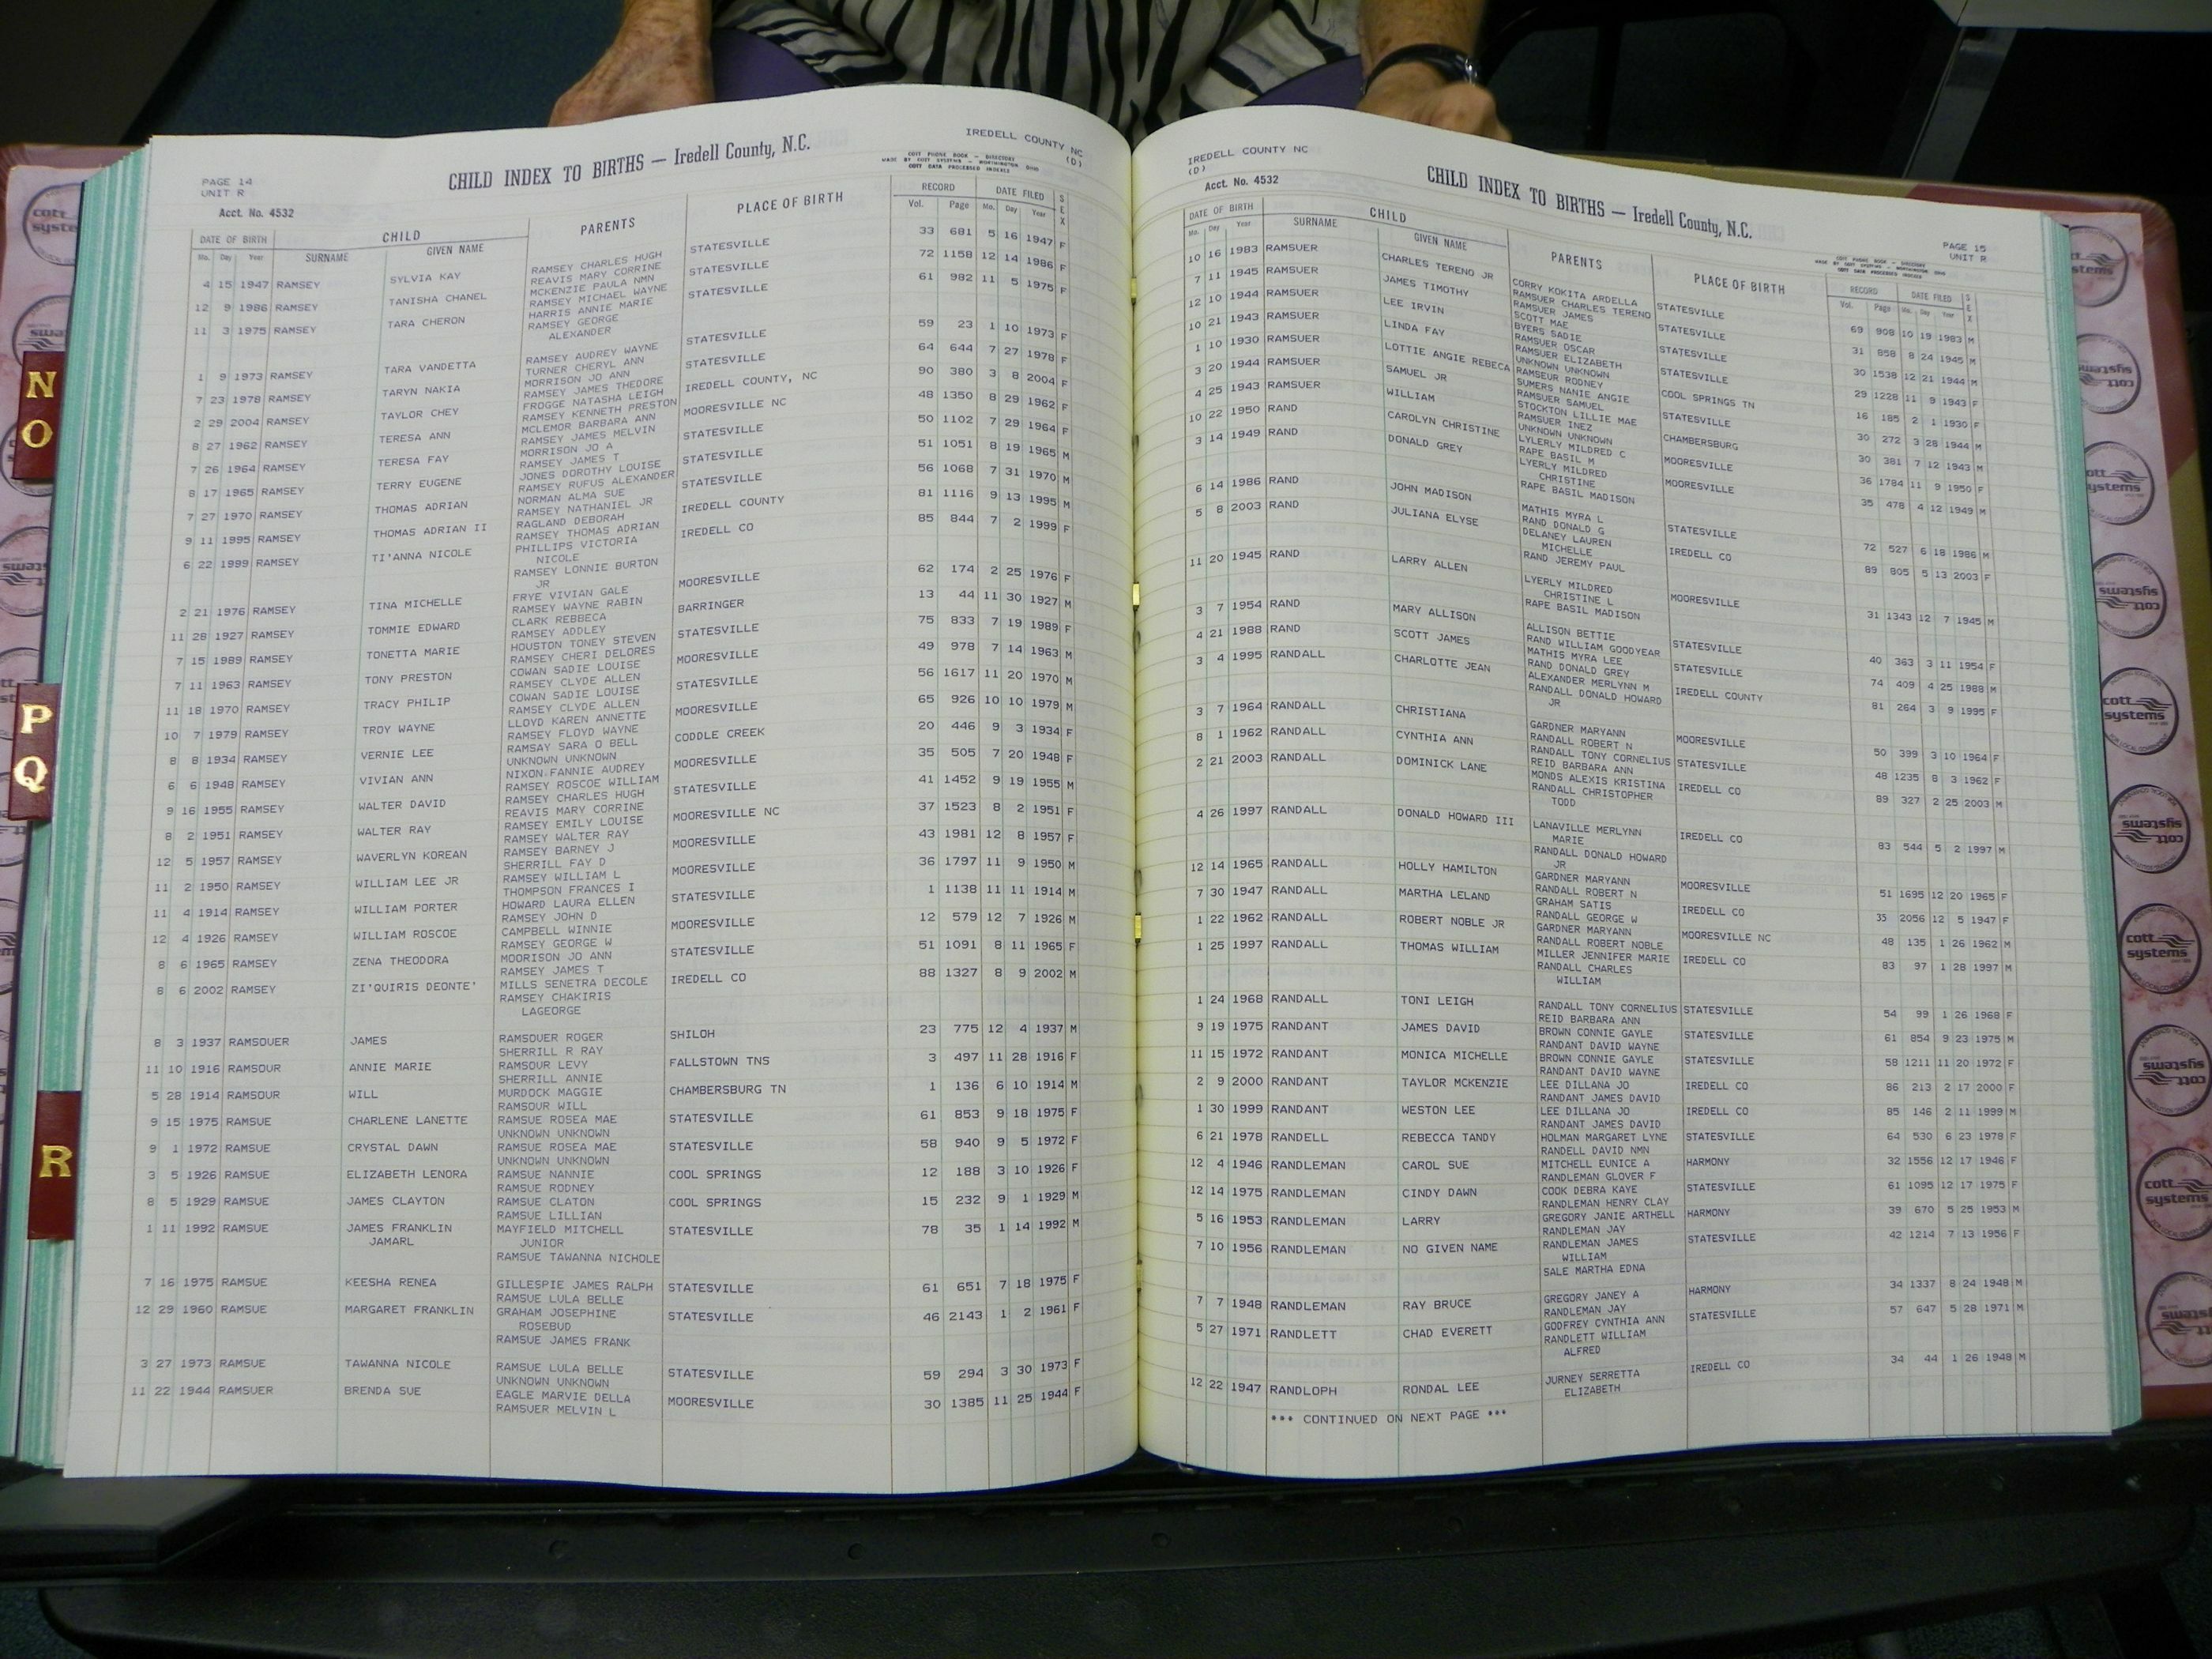 IREDELL COUNTY NC
(D)
CHILD INDEX TO BIRTHS — Iredell County, N.C.
PAGE 14
UNIT R
Acct. No. 4532
DATE OF BIRTH CHILD PARENTS PLACE OF BIRTH RECORD DATE FILED SEX
Mo. Day Year SURNAME GIVEN NAME Vol. Page Mo. Day Year
4 15 1947 RAMSEY SYLVIA KAY RAMSEY CHARLES HUGH STATESVILLE 33 681 5 16 1947 F
REAVIS MARY CORRINE
12 9 1986 RAMSEY TANISHA CHANEL MCKENZIE PAULA NMN STATESVILLE 72 1158 12 14 1986 F
RAMSEY MICHAEL WAYNE
11 3 1975 RAMSEY TARA CHERON HARRIS ANNIE MARIE STATESVILLE 61 982 11 5 1975 F
RAMSEY GEORGE
ALEXANDER
1 9 1973 RAMSEY TARA VANDETTA RAMSEY AUDREY WAYNE STATESVILLE 59 23 1 10 1973 F
TURNER CHERYL ANN
7 23 1978 RAMSEY TARYN NAKIA MORRISON JO ANN STATESVILLE 64 644 7 27 1978 F
RAMSEY JAMES THEDORE
2 29 2004 RAMSEY TAYLOR CHEY FROGGE NATASHA LEIGH IREDELL COUNTY, NC 90 380 3 8 2004 F
RAMSEY KENNETH PRESTON
8 27 1962 RAMSEY TERESA ANN MCLEMOR BARBARA ANN MOORESVILLE NC 48 1350 8 29 1962 F
RAMSEY JAMES MELVIN
7 26 1964 RAMSEY TERESA FAY MORRISON JO A STATESVILLE 50 1102 7 29 1964 F
RAMSEY JAMES T
8 17 1965 RAMSEY TERRY EUGENE JONES DOROTHY LOUISE STATESVILLE 51 1051 8 19 1965 M
RAMSEY RUFUS ALEXANDER
7 27 1970 RAMSEY THOMAS ADRIAN NORMAN ALMA SUE STATESVILLE 56 1068 7 31 1970 M
RAMSEY NATHANIEL JR
9 11 1995 RAMSEY THOMAS ADRIAN II RAGLAND DEBORAH IREDELL COUNTY 81 1116 9 13 1995 M
RAMSEY THOMAS ADRIAN
6 22 1999 RAMSEY TI'ANNA NICOLE PHILLIPS VICTORIA IREDELL CO 85 844 7 2 1999 F
NICOLE
RAMSEY LONNIE BURTON
JR
2 21 1976 RAMSEY TINA MICHELLE FRYE VIVIAN GALE MOORESVILLE 62 174 2 25 1976 F
RAMSEY WAYNE RABIN
11 28 1927 RAMSEY TOMMIE EDWARD CLARK REBBECA BARRINGER 13 44 11 30 1927 M
RAMSEY ADDLEY
7 15 1989 RAMSEY TONETTA MARIE HOUSTON TONEY STEVEN STATESVILLE 75 833 7 19 1989 F
RAMSEY CHERI DELORES
7 11 1963 RAMSEY TONY PRESTON COWAN SADIE LOUISE MOORESVILLE 49 978 7 14 1963 M
RAMSEY CLYDE ALLEN
11 18 1970 RAMSEY TRACY PHILIP COWAN SADIE LOUISE STATESVILLE 56 1617 11 20 1970 M
RAMSEY CLYDE ALLEN
10 7 1979 RAMSEY TROY WAYNE LLOYD KAREN ANNETTE MOORESVILLE 65 926 10 10 1979 M
RAMSEY FLOYD WAYNE
8 8 1934 RAMSEY VERNIE LEE RAMSAY SARA O BELL CODDLE CREEK 20 446 9 3 1934 F
UNKNOWN UNKNOWN
6 6 1948 RAMSEY VIVIAN ANN NIXON FANNIE AUDREY MOORESVILLE 35 505 7 20 1948 F
RAMSEY ROSCOE WILLIAM
9 16 1955 RAMSEY WALTER DAVID RAMSEY CHARLES HUGH STATESVILLE 41 1452 9 19 1955 M
REAVIS MARY CORRINE
8 2 1951 RAMSEY WALTER RAY RAMSEY EMILY LOUISE MOORESVILLE NC 37 1523 8 2 1951 F
RAMSEY WALTER RAY
12 5 1957 RAMSEY WAVERLYN KOREAN RAMSEY BARNEY J MOORESVILLE 43 1981 12 8 1957 F
SHERRILL FAY D
11 2 1950 RAMSEY WILLIAM LEE JR RAMSEY WILLIAM L MOORESVILLE 36 1797 11 9 1950 M
THOMPSON FRANCES I
11 4 1914 RAMSEY WILLIAM PORTER HOWARD LAURA ELLEN STATESVILLE 1 1138 11 11 1914 M
RAMSEY JOHN D
12 4 1926 RAMSEY WILLIAM ROSCOE CAMPBELL WINNIE MOORESVILLE 12 579 12 7 1926 M
RAMSEY GEORGE W
8 6 1965 RAMSEY ZENA THEODORA MOORISON JO ANN STATESVILLE 51 1091 8 11 1965 F
RAMSEY JAMES T
8 6 2002 RAMSEY ZI'QUIRIS DEONTE' MILLS SENETRA DECOLE IREDELL CO 88 1327 8 9 2002 M
RAMSEY CHAKIRIS
LAGEORGE
8 3 1937 RAMSOUER JAMES RAMSOUER ROGER SHILOH 23 775 12 4 1937 M
SHERRILL R RAY
11 10 1916 RAMSOUR ANNIE MARIE RAMSOUR LEVY FALLSTOWN TNS 3 497 11 28 1916 F
SHERRILL ANNIE
5 28 1914 RAMSOUR WILL MURDOCK MAGGIE CHAMBERSBURG TN 1 136 6 10 1914 M
RAMSOUR WILL
9 15 1975 RAMSUE CHARLENE LANETTE RAMSUE ROSEA MAE STATESVILLE 61 853 9 18 1975 F
UNKNOWN UNKNOWN
9 1 1972 RAMSUE CRYSTAL DAWN RAMSUE ROSEA MAE STATESVILLE 58 940 9 5 1972 F
UNKNOWN UNKNOWN
3 5 1926 RAMSUE ELIZABETH LENORA RAMSUE NANNIE COOL SPRINGS 12 188 3 10 1926 F
RAMSUE RODNEY
8 5 1929 RAMSUE JAMES CLAYTON RAMSUE CLATON COOL SPRINGS 15 232 9 1 1929 M
RAMSUE LILLIAN
1 11 1992 RAMSUE JAMES FRANKLIN MAYFIELD MITCHELL STATESVILLE 78 35 1 14 1992 M
JAMARL JUNIOR
RAMSUE TAWANNA NICHOLE
7 16 1975 RAMSUE KEESHA RENEA GILLESPIE JAMES RALPH STATESVILLE 61 651 7 18 1975 F
RAMSUE LULA BELLE
12 29 1960 RAMSUE MARGARET FRANKLIN GRAHAM JOSEPHINE STATESVILLE 46 2143 1 2 1961 F
ROSEBUD
RAMSUE JAMES FRANK
3 27 1973 RAMSUE TAWANNA NICOLE RAMSUE LULA BELLE STATESVILLE 59 294 3 30 1973 F
UNKNOWN UNKNOWN
11 22 1944 RAMSUER BRENDA SUE EAGLE MARVIE DELLA MOORESVILLE 30 1385 11 25 1944 F
RAMSUER MELVIN L
IREDELL COUNTY NC
(D)
Acct. No. 4532
CHILD INDEX TO BIRTHS — Iredell County, N.C.
PAGE 15
UNIT R
DATE OF BIRTH CHILD PARENTS PLACE OF BIRTH RECORD DATE FILED SEX
Mo. Day Year SURNAME GIVEN NAME Vol. Page Mo. Day Year
10 16 1983 RAMSUER CHARLES TERENO JR CORRY KOKITA ARDELLA STATESVILLE 69 908 10 19 1983 M
RAMSUER CHARLES TERENO
7 11 1945 RAMSUER JAMES TIMOTHY RAMSUER JAMES STATESVILLE 31 858 8 24 1945 M
SCOTT MAE
12 10 1944 RAMSUER LEE IRVIN BYERS SADIE STATESVILLE 30 1538 12 21 1944 M
RAMSUER OSCAR
10 21 1943 RAMSUER LINDA FAY RAMSUER ELIZABETH STATESVILLE 29 1228 11 9 1943 F
UNKNOWN UNKNOWN
1 10 1930 RAMSUER LOTTIE ANGIE REBECA RAMSEUR RODNEY COOL SPRINGS TN 16 185 2 1 1930 F
SUMERS NANIE ANGIE
3 20 1944 RAMSUER SAMUEL JR RAMSUER SAMUEL STATESVILLE 30 272 3 28 1944 M
STOCKTON LILLIE MAE
4 25 1943 RAMSUER WILLIAM RAMSUER INEZ CHAMBERSBURG 30 381 7 12 1943 M
UNKNOWN UNKNOWN
10 22 1950 RAND CAROLYN CHRISTINE LYLERLY MILDRED C MOORESVILLE 36 1784 11 9 1950 F
RAPE BASIL M
3 14 1949 RAND DONALD GREY LYERLY MILDRED MOORESVILLE 35 478 4 12 1949 M
CHRISTINE
RAPE BASIL MADISON
6 14 1986 RAND JOHN MADISON MATHIS MYRA L STATESVILLE 72 527 6 18 1986 M
RAND DONALD G
5 8 2003 RAND JULIANA ELYSE DELANEY LAUREN IREDELL CO 89 805 5 13 2003 F
MICHELLE
RAND JEREMY PAUL
11 20 1945 RAND LARRY ALLEN LYERLY MILDRED MOORESVILLE 31 1343 12 7 1945 M
CHRISTINE L
RAPE BASIL MADISON
3 7 1954 RAND MARY ALLISON ALLISON BETTIE STATESVILLE 40 363 3 11 1954 F
RAND WILLIAM GOODYEAR
4 21 1988 RAND SCOTT JAMES MATHIS MYRA LEE STATESVILLE 74 409 4 25 1988 M
RAND DONALD GREY
3 4 1995 RANDALL CHARLOTTE JEAN ALEXANDER MERLYNN M IREDELL COUNTY 81 264 3 9 1995 F
RANDALL DONALD HOWARD
JR
3 7 1964 RANDALL CHRISTIANA GARDNER MARYANN MOORESVILLE 50 399 3 10 1964 F
RANDALL ROBERT N
8 1 1962 RANDALL CYNTHIA ANN RANDALL TONY CORNELIUS STATESVILLE 48 1235 8 3 1962 F
REID BARBARA ANN
2 21 2003 RANDALL DOMINICK LANE MONDS ALEXIS KRISTINA IREDELL CO 89 327 2 25 2003 M
RANDALL CHRISTOPHER
TODD
4 26 1997 RANDALL DONALD HOWARD III LANAVILLE MERLYNN IREDELL CO 83 544 5 2 1997 M
MARIE
RANDALL DONALD HOWARD
JR
12 14 1965 RANDALL HOLLY HAMILTON GARDNER MARYANN MOORESVILLE 51 1695 12 20 1965 F
RANDALL ROBERT N
7 30 1947 RANDALL MARTHA LELAND GRAHAM SATIS IREDELL CO 35 2056 12 5 1947 F
RANDALL GEORGE W
1 22 1962 RANDALL ROBERT NOBLE JR GARDNER MARYANN MOORESVILLE NC 48 135 1 26 1962 M
RANDALL ROBERT NOBLE
1 25 1997 RANDALL THOMAS WILLIAM MILLER JENNIFER MARIE IREDELL CO 83 97 1 28 1997 M
RANDALL CHARLES
WILLIAM
1 24 1968 RANDALL TONI LEIGH RANDALL TONY CORNELIUS STATESVILLE 54 99 1 26 1968 F
REID BARBARA ANN
9 19 1975 RANDANT JAMES DAVID BROWN CONNIE GAYLE STATESVILLE 61 854 9 23 1975 M
RANDANT DAVID WAYNE
11 15 1972 RANDANT MONICA MICHELLE BROWN CONNIE GAYLE STATESVILLE 58 1211 11 20 1972 F
RANDANT DAVID WAYNE
2 9 2000 RANDANT TAYLOR MCKENZIE LEE DILLANA JO IREDELL CO 86 213 2 17 2000 F
RANDANT JAMES DAVID
1 30 1999 RANDANT WESTON LEE LEE DILLANA JO IREDELL CO 85 146 2 11 1999 M
RANDANT JAMES DAVID
6 21 1978 RANDELL REBECCA TANDY HOLMAN MARGARET LYNE STATESVILLE 64 530 6 23 1978 F
RANDELL DAVID NMN
12 4 1946 RANDLEMAN CAROL SUE MITCHELL EUNICE A HARMONY 32 1556 12 17 1946 F
RANDLEMAN GLOVER F
12 14 1975 RANDLEMAN CINDY DAWN COOK DEBRA KAYE STATESVILLE 61 1095 12 17 1975 F
RANDLEMAN HENRY CLAY
5 16 1953 RANDLEMAN LARRY GREGORY JANIE ARTHELL HARMONY 39 670 5 25 1953 M
RANDLEMAN JAY
7 10 1956 RANDLEMAN NO GIVEN NAME RANDLEMAN JAMES STATESVILLE 42 1214 7 13 1956 F
WILLIAM
SALE MARTHA EDNA
7 7 1948 RANDLEMAN RAY BRUCE GREGORY JANEY A HARMONY 34 1337 8 24 1948 M
RANDLEMAN JAY
5 27 1971 RANDLETT CHAD EVERETT GODFREY CYNTHIA ANN STATESVILLE 57 647 5 28 1971 M
RANDLETT WILLIAM
ALFRED
12 22 1947 RANDLOPH RONDAL LEE JURNEY SERRETTA IREDELL CO 34 44 1 26 1948 M
ELIZABETH
*** CONTINUED ON NEXT PAGE ***
N
O
P
Q
R
cott systems